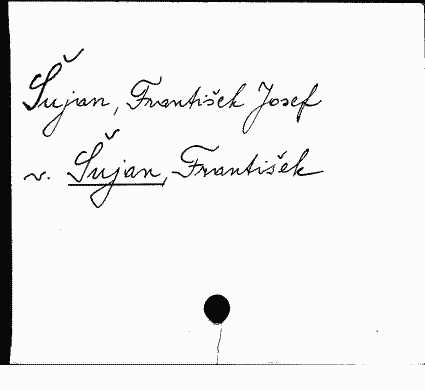 Šujan, František Josef
v. Šujan, František